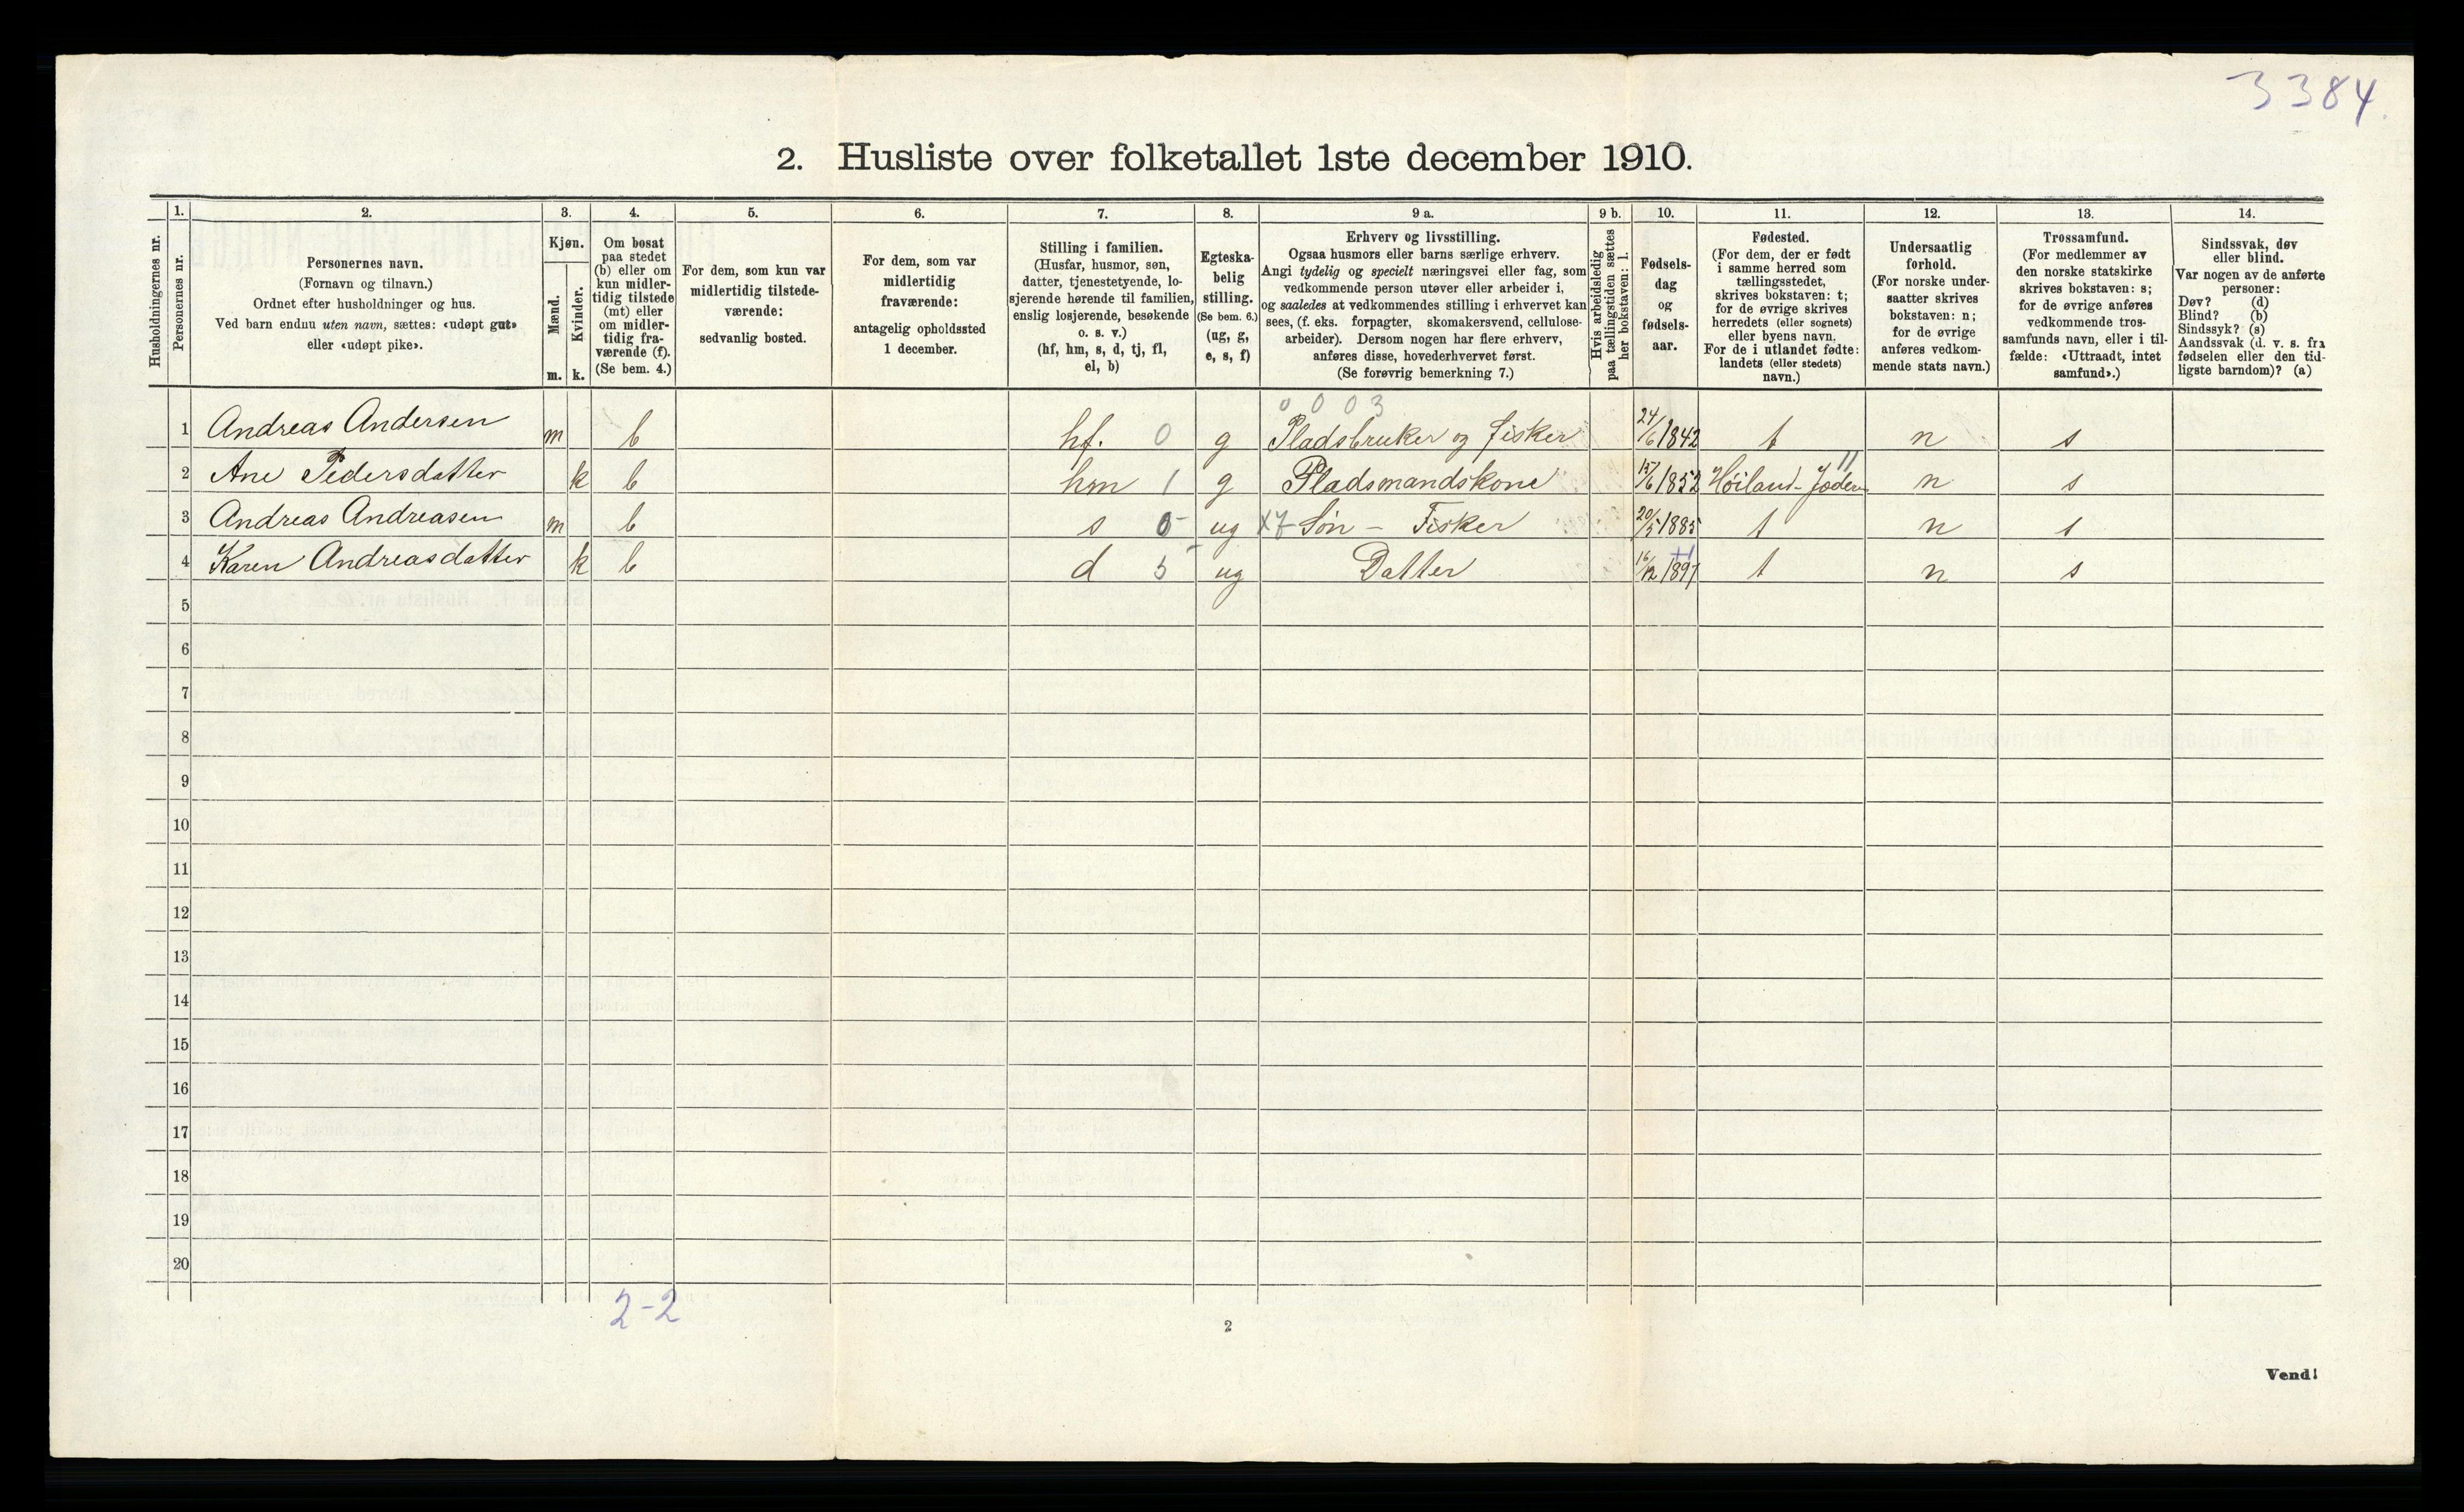 3384
2. Husliste over folketallet 1ste december 1910.
Husholdningernes nr.
1.
Personernes nr.
2.
Personernes navn.
(Fornavn og tilnavn.)
Ordnet efter husholdninger og hus.
Ved barn endnu uten navn, sættes: «udøpt gut»
eller «udøpt pike».
3.
Kjøn.
Mænd.
Kvinder.
m. k.
4.
Om bosat
paa stedet
(b) eller om
kun midler-
tidig tilstede
(mt) eller
om midler-
tidig fra-
værende (f).
(Se bem. 4.)
5.
For dem, som kun var
midlertidig tilstede-
værende:
sedvanlig bosted.
6.
For dem, som var
midlertidig
fraværende:
antagelig opholdssted
1 december.
7.
Stilling i familien.
(Husfar, husmor, søn,
datter, tjenestetyende, lo-
sjerende hørende til familien,
enslig losjerende, besøkende
o. s. v.)
(hf, hm, s, d, tj, fl,
el, b)
8.
Egteska-
belig
stilling.
(Se bem. 6.)
(ug, g,
e, s, f)
9 a.
Erhverv og livsstilling.
Ogsaa husmors eller barns særlige erhverv.
Angi tydelig og specielt næringsvei eller fag, som
vedkommende person utøver eller arbeider i,
og saaledes at vedkommendes stilling i erhvervet kan
sees, (f. eks. forpagter, skomakersvend, cellulose-
arbeider). Dersom nogen har flere erhverv,
anføres disse, hovederhvervet først.
(Se forøvrig bemerkning 7.)
9 b.
Hvis arbeidsledig
paa tællingstiden sættes
her bokstaven: l.
10.
Fødsels-
dag
og
fødsels-
aar.
11.
Fødested.
(For dem, der er født
i samme herred som
tællingsstedet,
skrives bokstaven: t;
for de øvrige skrives
herredets (eller sognets)
eller byens navn.
For de i utlandet fødte:
landets (eller stedets)
navn.)
12.
Undersaatlig
forhold.
(For norske under-
saatter skrives
bokstaven: n;
for de øvrige
anføres vedkom-
mende stats navn.)
13.
Trossamfund.
(For medlemmer av
den norske statskirke
skrives bokstaven: s;
for de øvrige anføres
vedkommende tros-
samfunds navn, eller i til-
fælde: «Uttraadt, intet
samfund».)
14.
Sindssvak, døv
eller blind.
Var nogen av de anførte
personer:
Døv? (d)
Blind? (b)
Sindssyk? (s)
Aandssvak (d. v. s. fra
fødselen eller den tid-
ligste barndom)? (a)
0 0 0 3
1 Andreas Andersen m b hf. 0 g Pladsbruker og fisker 24/6 1842 t n s
2 Ane Pedersdatter k b hm 1 g Pladsmandskone 15/6 1852 Høiland - Jæderen 11 n s
3 Andreas Andreasen m b s 5 ug X7 Søn - Fisker 20/5 1885 t n s
4 Karen Andreasdatter k b d 5 ug Datter 16/12 1897 t n s
5
6
7
8
9
10
11
12
13
14
15
16
17
18
19
20
2-2
2
Vend!